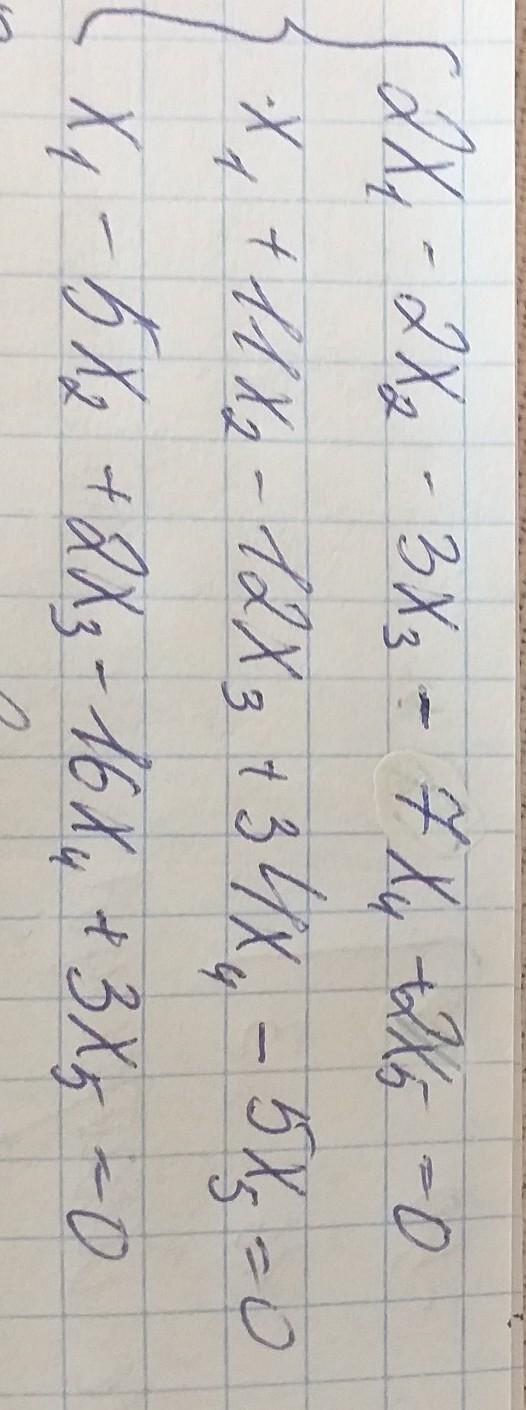 2x₁ - 2x₂ - 3x₃ - 7x₄ + 2x₅ = 0
x₁ + 11x₂ - 12x₃ + 34x₄ - 5x₅ = 0
x₁ - 5x₂ + 2x₃ - 16x₄ + 3x₅ = 0